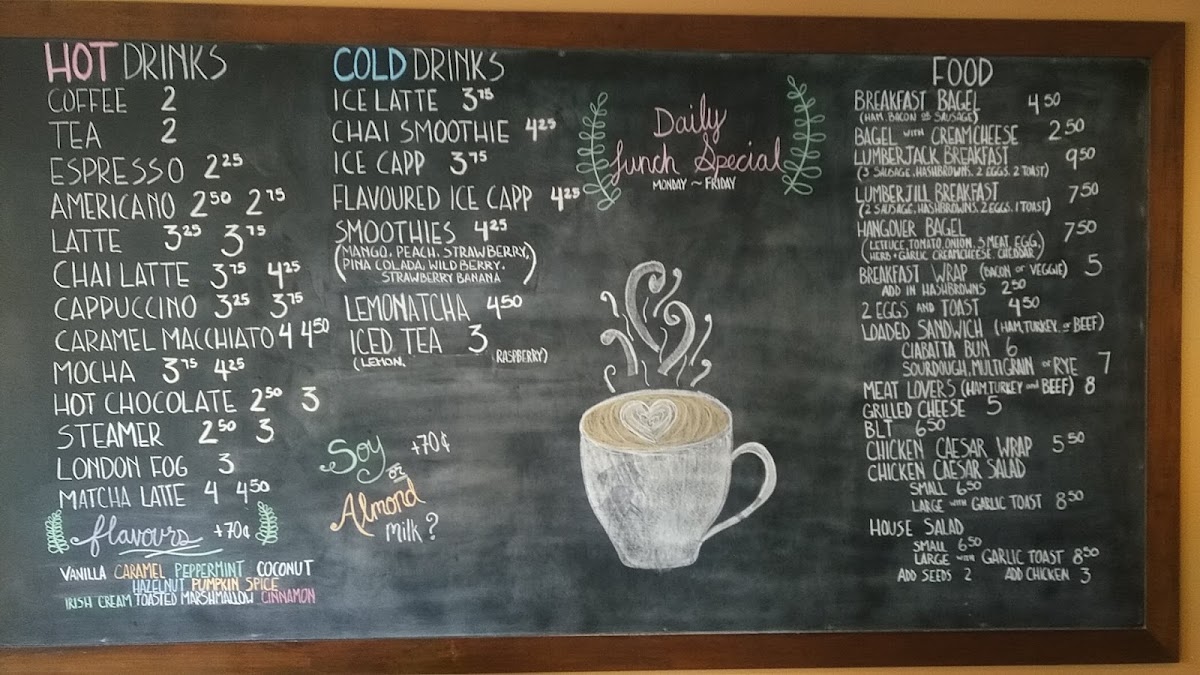 HOT DRINKS
COFFEE 2
TEA 2
ESPRESSO 2 25
AMERICANO 2 50 2 75
LATTE 3 25 3 75
CHAI LATTE 3 75 4 25
CAPPUCCINO 3 25 3 75
CARAMEL MACCHIATO 4 4 50
MOCHA 3 75 4 25
HOT CHOCOLATE 2 50 3
STEAMER 2 50 3
LONDON FOG 3
MATCHA LATTE 4 4 50
flavours +70¢
VANILLA CARAMEL PEPPERMINT COCONUT
HAZELNUT PUMPKIN SPICE
IRISH CREAM TOASTED MARSHMALLOW CINNAMON
COLD DRINKS
ICE LATTE 3 75
CHAI SMOOTHIE 4 25
ICE CAPP 3 75
FLAVOURED ICE CAPP 4 25
SMOOTHIES 4 25
(MANGO, PEACH, STRAWBERRY,
PINA COLADA, WILD BERRY,
STRAWBERRY BANANA)
LEMONATCHA 4 50
ICED TEA 3
(LEMON, RASPBERRY)
Soy +70¢
or
Almond
milk?
Daily
Lunch Special
MONDAY ~ FRIDAY
FOOD
BREAKFAST BAGEL 4 50
(HAM, BACON OR SAUSAGE)
BAGEL WITH CREAMCHEESE 2 50
LUMBERJACK BREAKFAST 9 50
(3 SAUSAGE, HASHBROWNS, 2 EGGS, 2 TOAST)
LUMBERJILL BREAKFAST 7 50
(2 SAUSAGE, HASHBROWNS, 2 EGGS, 1 TOAST)
HANGOVER BAGEL 7 50
(LETTUCE, TOMATO, ONION, 3 MEAT, EGG,
HERB + GARLIC CREAMCHEESE, CHEDDAR)
BREAKFAST WRAP (BACON OR VEGGIE) 5
ADD IN HASHBROWNS 2 50
2 EGGS AND TOAST 4 50
LOADED SANDWICH (HAM, TURKEY, OR BEEF)
CIABATTA BUN 6
SOURDOUGH, MULTIGRAIN OR RYE 7
MEAT LOVERS (HAM TURKEY AND BEEF) 8
GRILLED CHEESE 5
BLT 6 50
CHICKEN CAESAR WRAP 5 50
CHICKEN CAESAR SALAD
SMALL 6 50
LARGE WITH GARLIC TOAST 8 50
HOUSE SALAD
SMALL 6 50
LARGE WITH GARLIC TOAST 8 50
ADD SEEDS 2 ADD CHICKEN 3